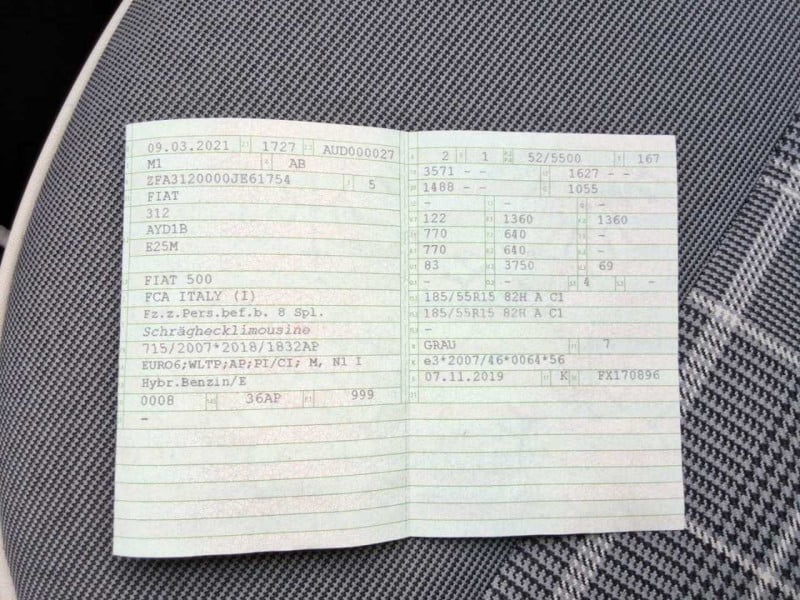 09.03.2021 1727 AUD000027
M1 AB
ZFA3120000JE61754 5
FIAT
312
AYD1B
E25M
FIAT 500
FCA ITALY (I)
Fz.z.Pers.bef.b. 8 Spl.
Schräghecklimousine
715/2007*2018/1832AP
EURO6;WLTP;AP;PI/CI; M, N1 I
Hybr.Benzin/E
0008 36AP 999
–
2 1 52/5500 167
3571 - - 1627 - -
1488 - - 1055
- - -
122 1360 1360
770 640 -
770 640 -
83 3750 69
- - 4 -
185/55R15 82H A C1
185/55R15 82H A C1
-
GRAU 7
e3*2007/46*0064*56
07.11.2019 K FX170896